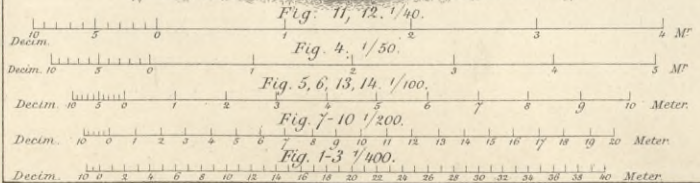 Fig. 11, 12. 1/40.
10 5 0 1 2 3 4 Mr.
Decim.
Fig. 4. 1/50.
Decim. 10 5 0 1 2 3 4 5 Mr.
Fig. 5, 6, 13, 14. 1/100.
Decim. 10 5 0 1 2 3 4 5 6 7 8 9 10 Meter.
Fig. 7-10 1/200.
Decim. 10 0 1 2 3 4 5 6 7 8 9 10 11 12 13 14 15 16 17 18 19 20 Meter.
Fig. 1-3 1/400.
Decim. 10 0 2 4 6 8 10 12 14 16 18 20 22 24 26 28 30 32 34 36 38 40 Meter.